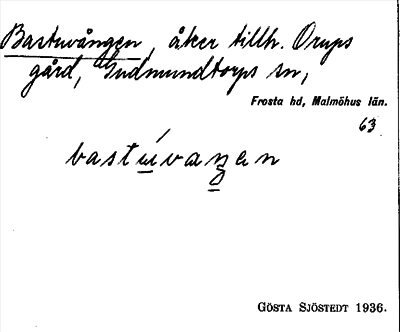 Bastuvången, åker tillh. Orups
gård, Gudmundtorps sn,
Frosta hd, Malmöhus län.
63
bastú̲vaŋ̲en
GÖSTA SJÖSTEDT 1936.